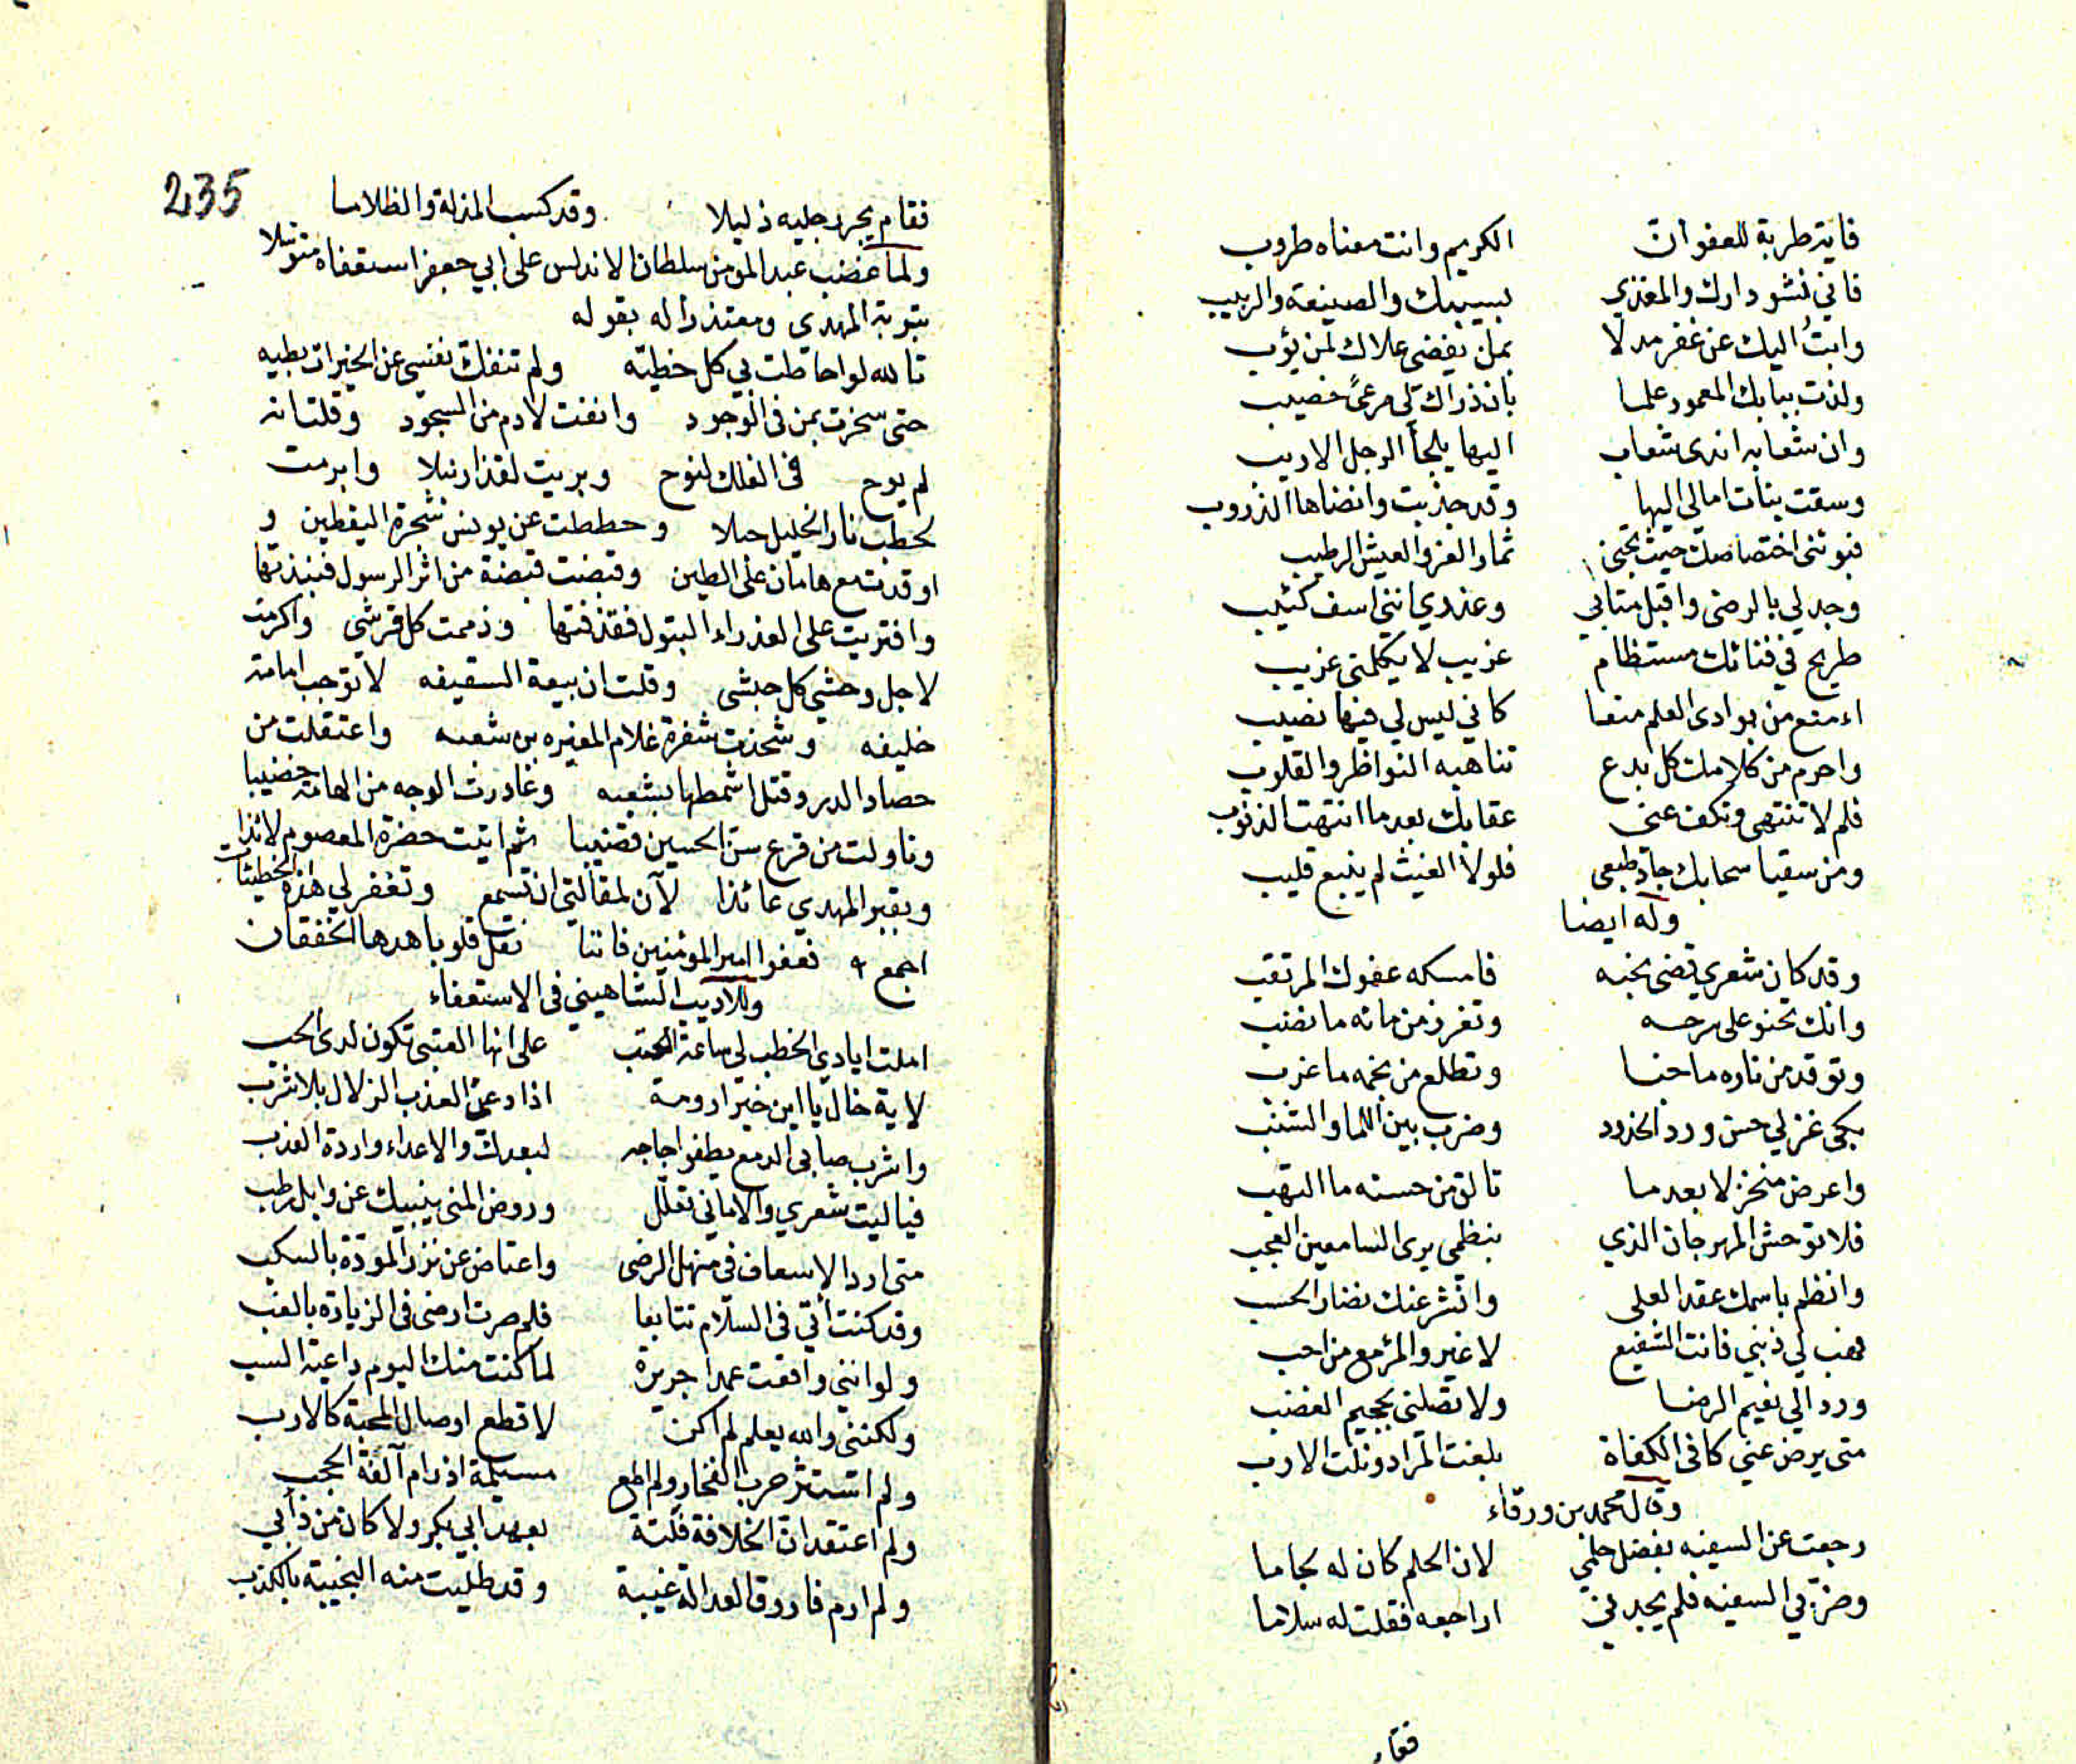 فاية طربة للعفو ان الكريم وانت معناه طروب
فاني نشو دارك والمغذي بسيبك والصنيعة والربيب
وابت اليك عن غفر مدلا بمن يفضي علاك لمن يؤب
ولذت ببابك المعمور علما بان ذراك لي مرعىً خصيب
وان شعابه اندى شعاب اليها يلجأ الرجل الاديب
وسقت بنات امالي اليها وقد جذبت وانضاها الدروب
فبوئني اختصاصك حيث تجنى ثمار العز والعيش الرطيب
وجد لي بالرضى واقبل متابي وعندي انني اسف كئيب
طريح في فنائك مستظام غريب لا يكلمني غريب
اء منع من بوادى العلم منعا كاني ليس لي فيها نصيب
واحرم من كلامك كل بدع تناهبه النواظر والقلوب
فلم لا تنتهي وتكف عني عقابك بعد ما انتهت الذنوب
ومن سقيا سحابك جاد طبعي فلولا الغيث لم ينبع قليب
وله ايضا
وقد كان شعري قضى نحبه فامسكه عفوك المرتقب
وانك تحنو على سرحه وتغرز من مائه ما نضب
وتوقد من ناره ما خبا وتطلع من نجمه ما غرب
بكى غزلي حسن ورد الخدود وضرب بين اللما والشنب
واعرض منخزلا بعدما تالق من حسنه ما التهب
فلا توحش المهرجان الذي بنظمي يرى السامعين العجب
وانظم باسمك عقد العلى وانثر عنك نضار الحسب
فهب لي ذنبي فانت الشفيع لا غير والمرؤ مع من احب
ورد الي نعيم الرضا ولا تصلني بجحيم الغضب
متى يرض عني كافى الكفاة بلغت المراد ونلت الارب
وقال محمد بن ورقاء
رجعت عن السفيه بفضل حلمي لان الحلم كان له لجاما
وضر بي السفيه فلم يجدني اراجعه فقلت له سلاما
فقام
235
فقام يجر رجليه ذليلا وقد كسب المذلة والظلاما
ولما غضب عبد المومن سلطان الاندلس على ابي جعفر استعفاه متوسلا
بتوبة المهدى ومعتذرا له بقوله
تالله لو احاطت بي كل خطيئه ولم تنفك نفسي عن الخيرات بطيه
حتى سخرت بمن فى الوجود وانفت لادم من السجود وقلت انه
لم يوح فى الفلك لنوح وبريت لقذار نبلا وابرمت
لحطب نار الخليل حبلا وحططت عن يونس شجرة اليقطين و
اوقدت مع هامان على الطين وقبضت قبضة من اثر الرسول فنبذتها
وافتريت على العذراء البتول فقذفتها وذممت كل قرشي واكرمت
لاجل وحشي كل حبشى وقلت ان بيعة السقيفه لا توجب امامة
خليفه وشحذت شفرة غلام المغيره بن شعبه واعتقلت من
حصار الدار وقتل اشمطها بشعبه وغادرت الوجه من الهامة خضيبا
وناولت من قرع سن الحسين قضيبا ثم اتيت حضرة المعصوم لائذا
وبقبر المهدي عائذا لآن لمقالتي ان تسمع وتغفر لي هذه الخطيئات
اجمع فعفوا امير المؤمنين فاننا نقل قلوبا هدها الخفقان
وللاديب الشاهيني فى الاستعفاء
املت ايادي الخطب لي ساعة العتب على انها العتبى تكون لدى الحب
لاية خال يا ابن خير ارومة اذاد عن العذب الزلال بلا شرب
واشرب صابى الدمع يطفو اجاجه لبعدك والاعداء واردة العذب
فياليت شعري والاماني تعلل وروض المنى ينبيك عن وابل رطب
متى ارد الاسعاف فى منهل الرضى واعتاض عن نزر المودة بالسكب
وقد كنت آتي فى السلام تتابعا فلم صرت ارضى فى الزيارة بالغب
ولو انني واقعت عمدا جريرة لما كنت منك اليوم داعية السب
ولكنني والله يعلم لم اكن لا قطع اوصال المحبة كالارب
ولم استثر حرب الفجار ولم اطع مسيلمة اذ رام آلفة الحجب
ولم اعتقد ان الخلافة فلتة بعهد ابي بكر ولا كان من ذأبي
ولم ارم فاروق العدالة غيبة وقد طليت منه النجيبة بالكذب